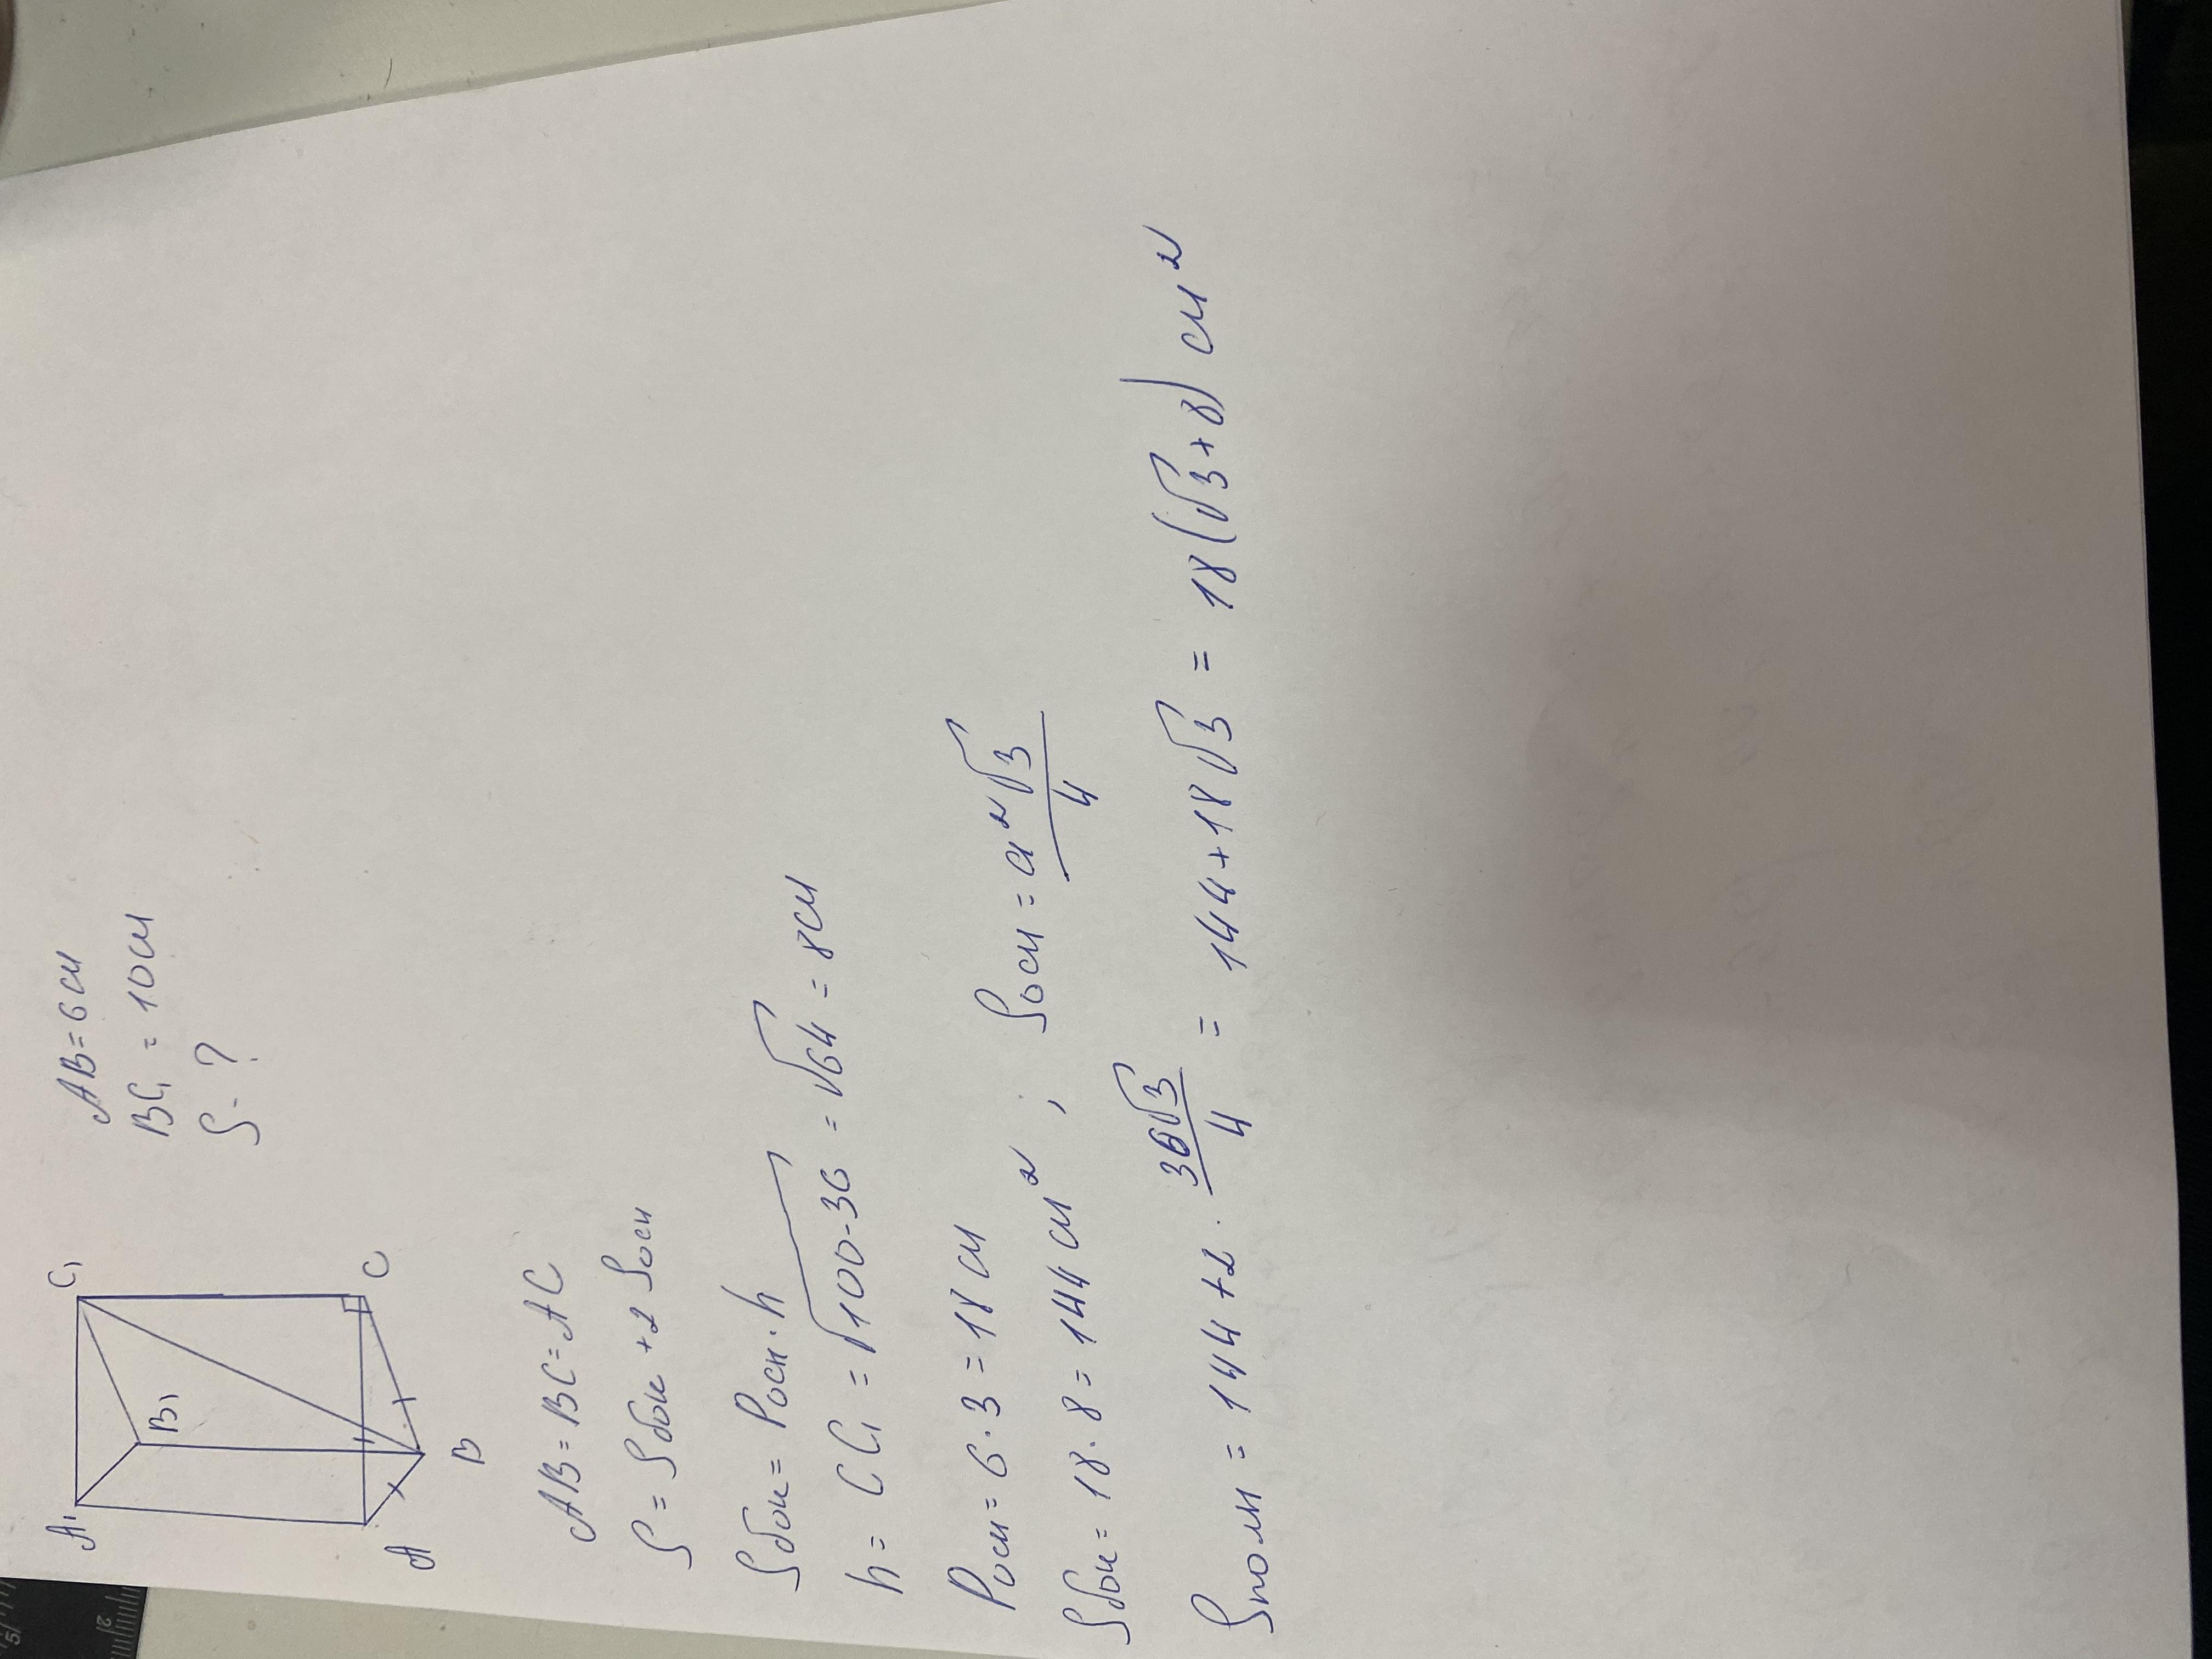 A₁
C₁
B₁
A
C
B
AB=6см
BC₁ = 10см
S-?
AB=BC=AC
S = Sбок +2 Sосн
Sбок = Pосн·h
h = CC₁ = √100-36 = √64 = 8см
Pосн = 6·3 = 18 см
Sбок = 18·8 = 144 см² ; Sосн = a²√3/4
Sполн = 144 +2· 36√3/4 = 144+18√3 = 18(√3+8) см²